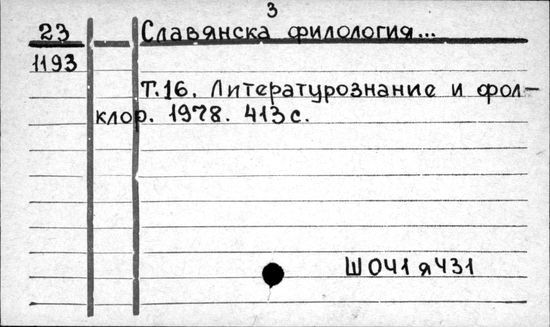 3
23 Славянска филология...
1193
Т.16. Литературознание и фол-
клор. 1978. 413 с.
Ш О41 я 431